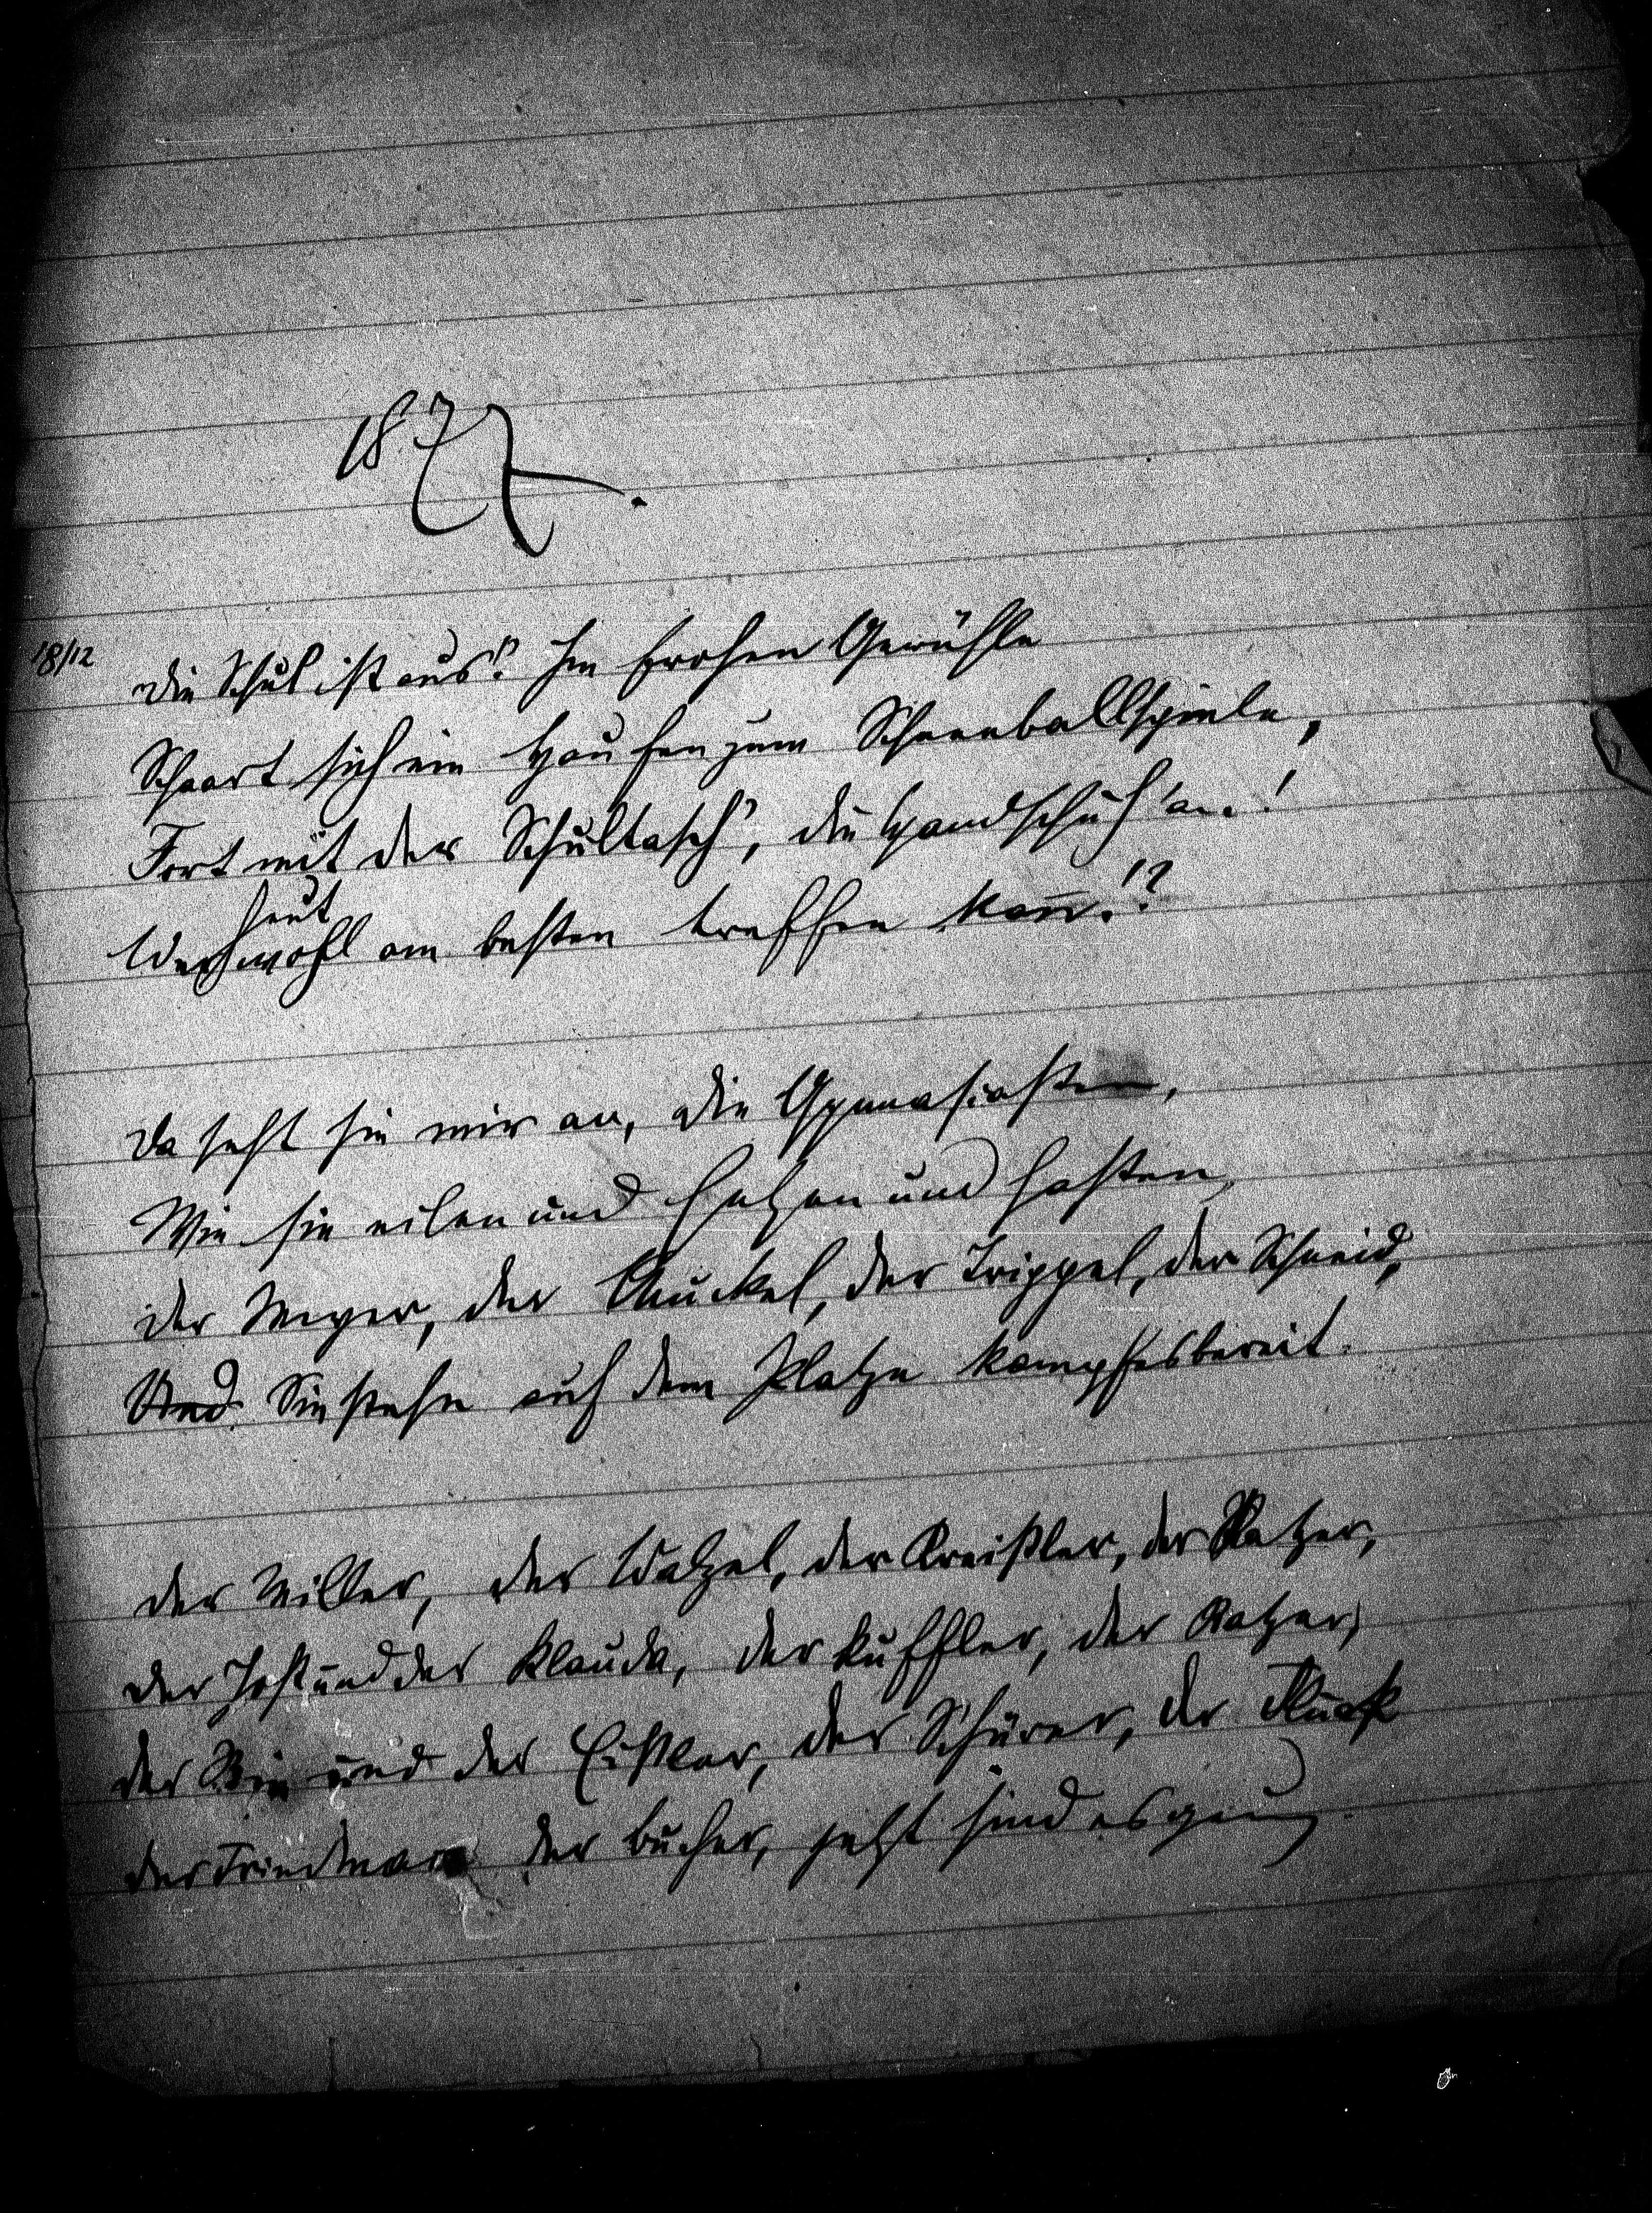 1877.
18/12
Die Schul ist aus! Im frohen Gewühle
Schaart sich ein Haufen zum Schneeballspiele,
Fort mit der Schultasch', die Handschuh' an!
heut
Wer wohl am besten treffen kann!?
Da seht sie mir an, die Gymnasiasten,
Wie sie eilen und hetzen und hasten,
Der Meyer, der der Trippel, der Schneid,
Und Sie stehn auf dem Platze kampfesbereit.
Der Miller, der Watzel, der Kreißler, der
Der Jost und der Klauda, der Kuffler, der Katzer,
Der und der Eißler, der Schürer, der
Der der Bucher, jetzt sind es genug